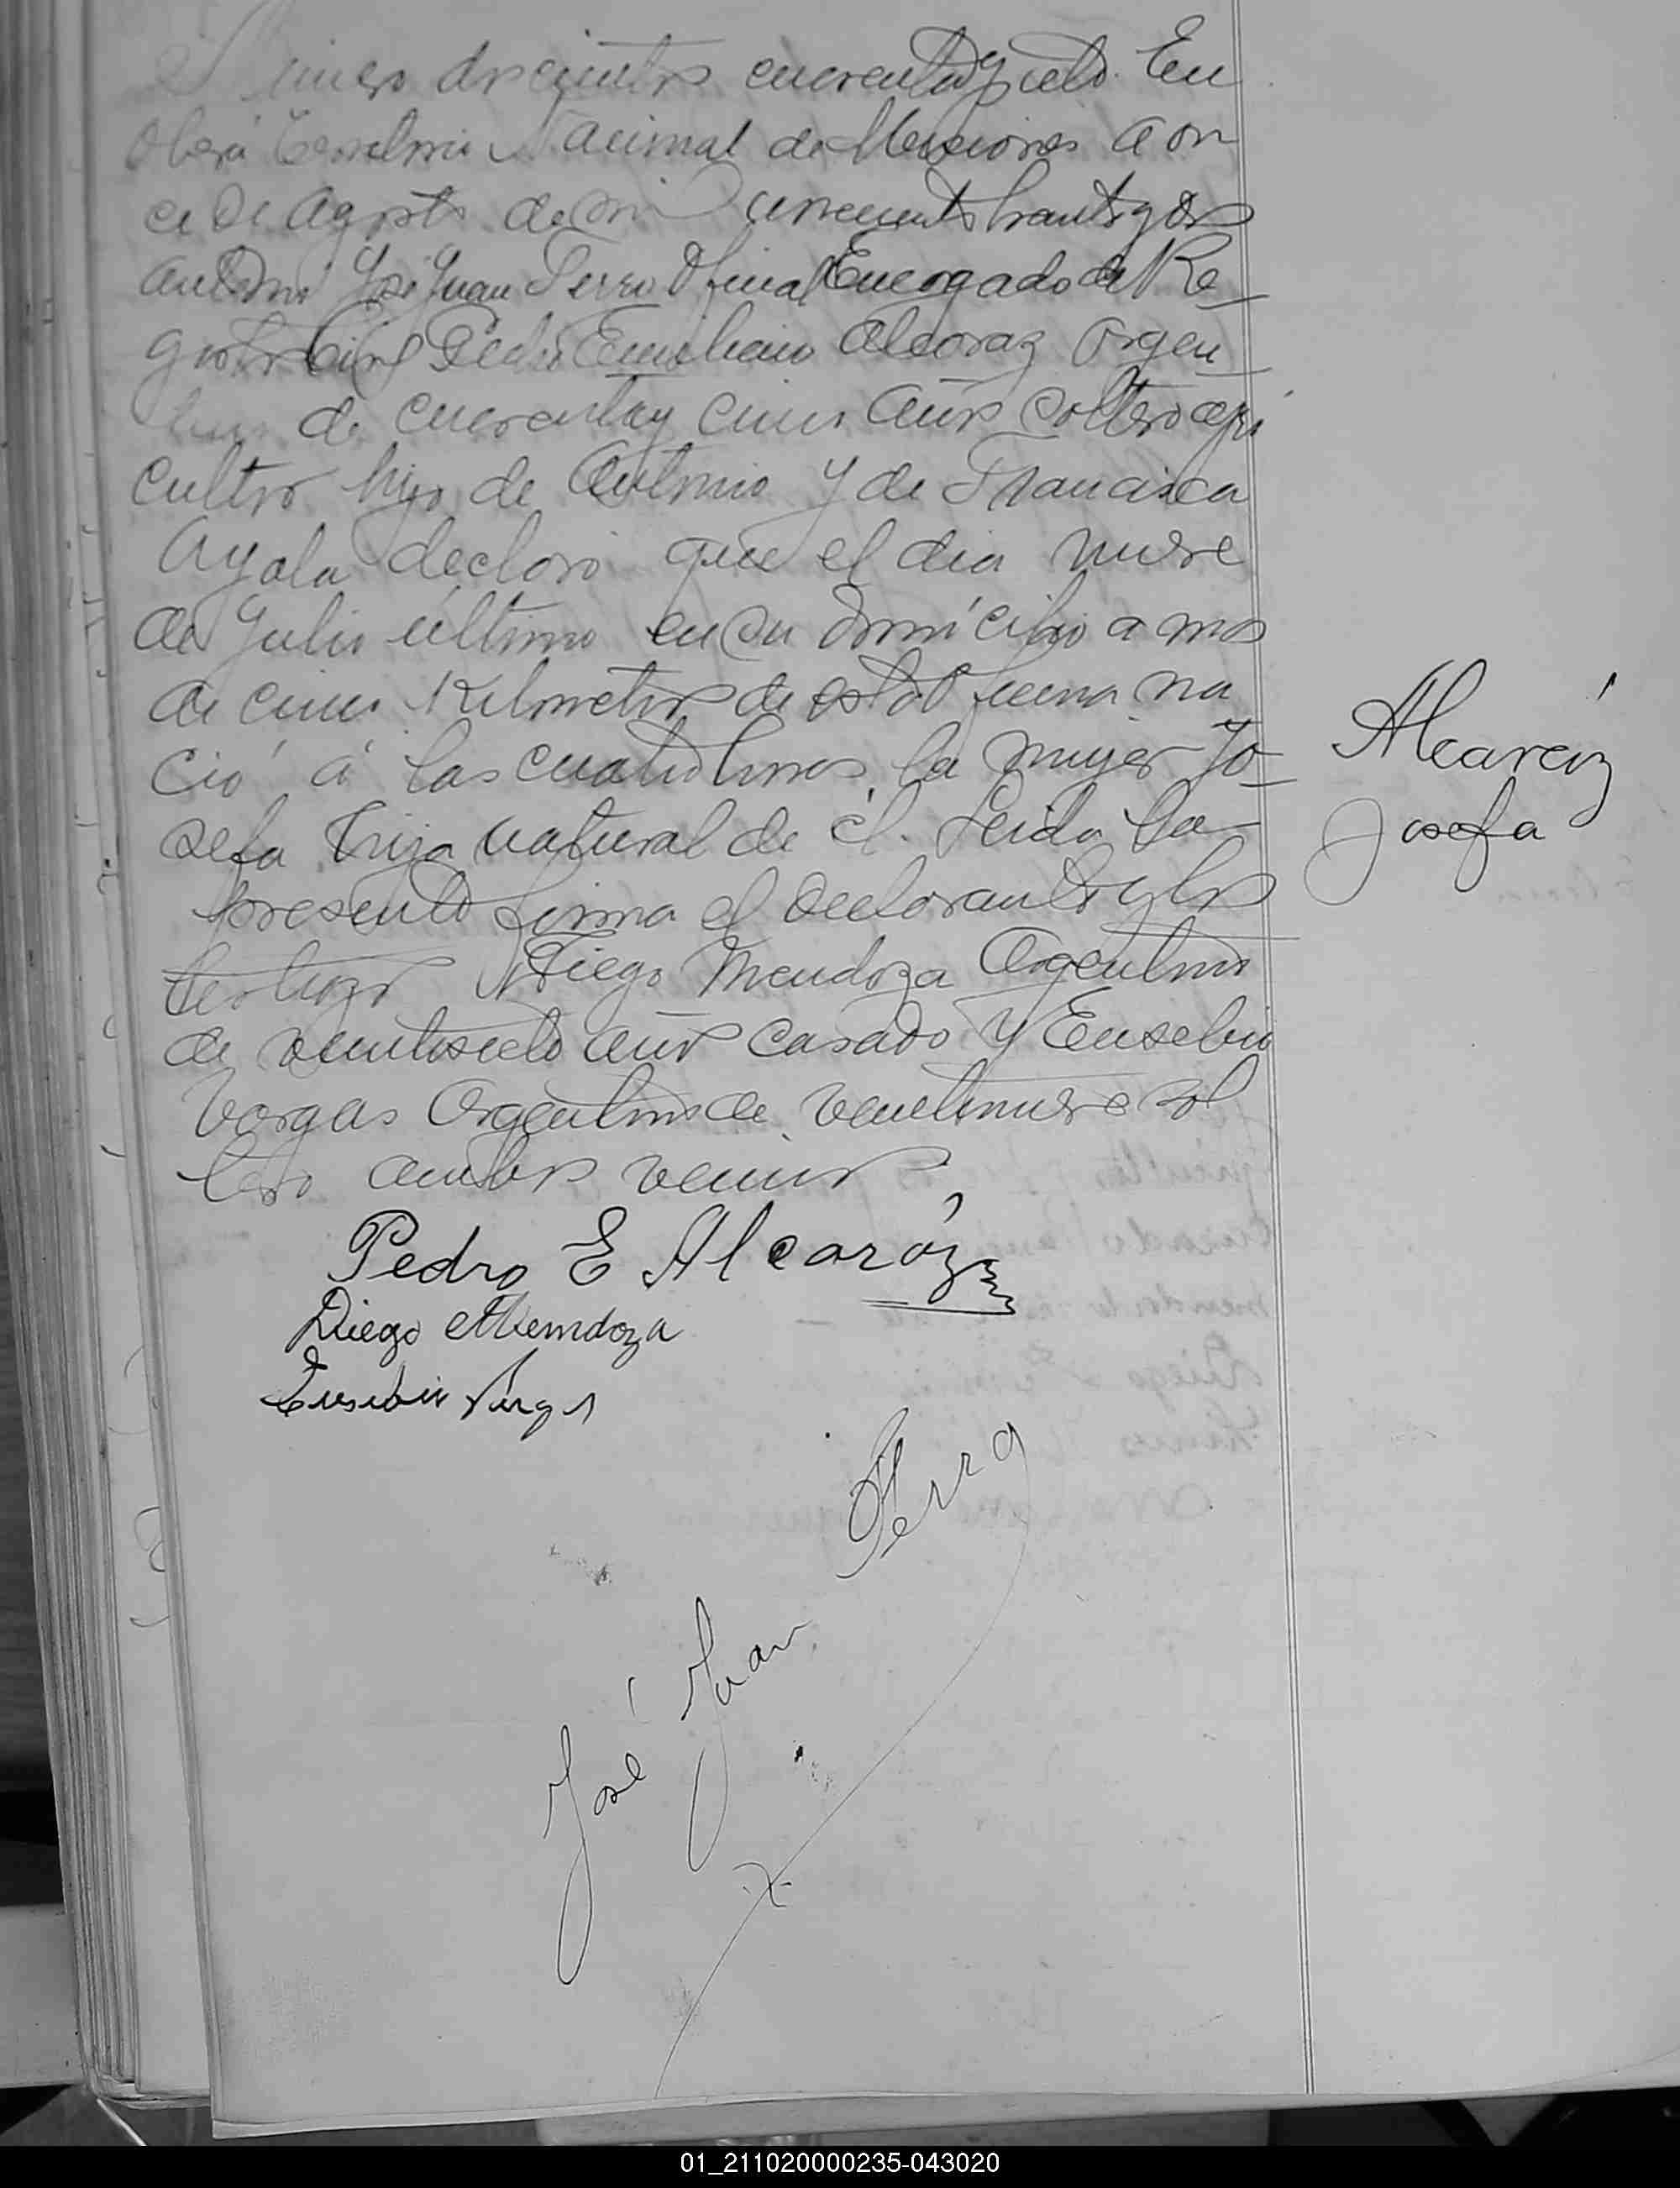 Número doscientos cuarenta y siete. En
Oberá Territorio Nacional de Misiones a on
ce de Agosto de mil novecientos treinta y dos
ante mi José Juan Perro Oficial Encargado de Re
gistro Civil Pedro Emiliano Alcaraz Argen
tino de cuarenta y cinco años soltero agri
cultor hijo de Antonio y de Francisca
Ayala declaró que el dia nueve
de Julio último en su domicilio a mas
de cinco Kilometros de esta Oficina na
ció á las cuatro horas la mujer Jo
sefa hija natural de él. Leida la
presente firma el declarante y los
testigos Diego Mendoza Argentino
de veintisiete años casado y Eusebio
Vargas Argentino de veintinueve sol
tero ambos vecinos
Alcaráz
Josefa
Pedro E Alcaráz
Diego Mendoza
Eusebio Vargas
José Juan Perro
01_211020000235-043020